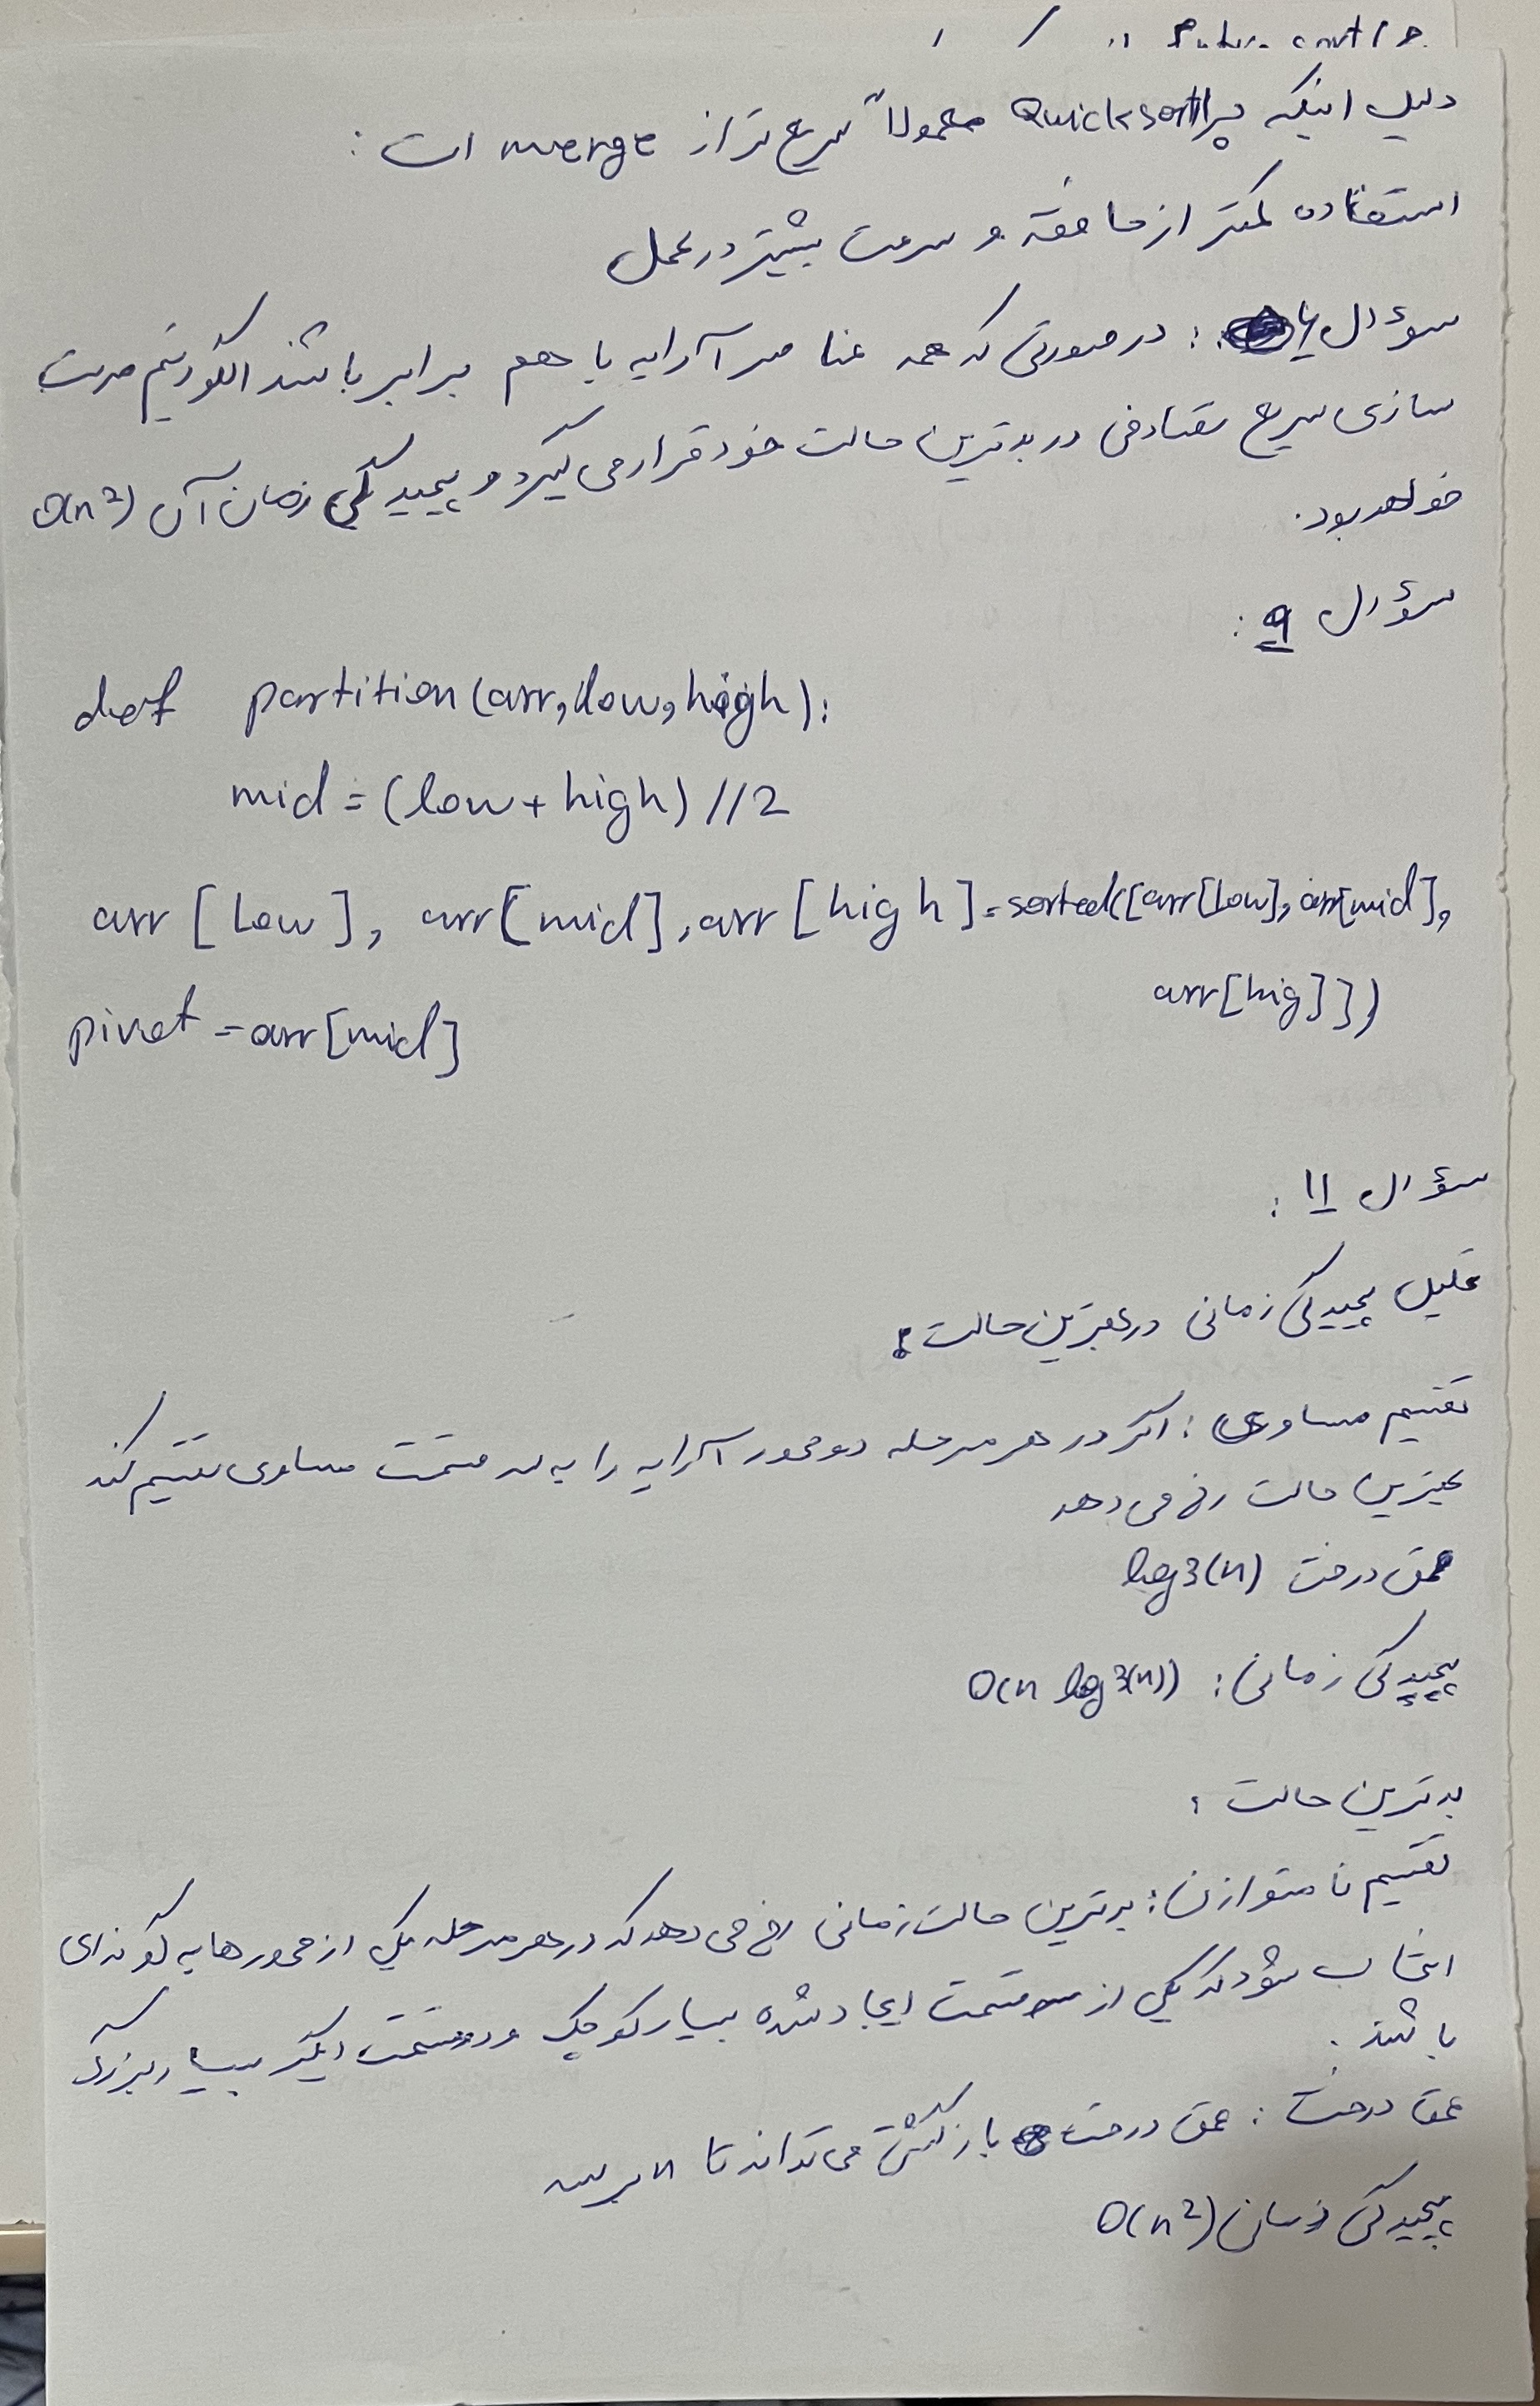 دلیل اینکه چرا Quicksort معمولاً سریع تر از merge است :
استفاده کمتر از حافظه و سرعت بیشتر در عمل
سؤال : در صورتی که همه عناصر آرایه با هم برابر باشند الگوریتم مرتب
سازی سریع تصادفی در بدترین حالت خود قرار می گیرد و پیچیدگی زمان آن O(n²)
خواهد بود.
سؤال ۹ :
def partition(arr, low, high):
mid = (low + high) // 2
arr [low], arr[mid], arr [high] = sorted([arr[low], arr[mid],
arr[hig]])
pivot = arr[mid]
سؤال ۱۱ :
تحلیل پیچیدگی زمانی در بهترین حالت :
تقسیم مساوی : اگر در هر مرحله دو محور آرایه را به سه قسمت مساوی تقسیم کند
بهترین حالت رخ می دهد
عمق درخت log3(n)
پیچیدگی زمانی : O(n log3(n))
بدترین حالت :
تقسیم نا متوازن : بدترین حالت زمانی رخ می دهد که در هر مرحله یکی از محورها به گونه ای
انتخاب شود که یکی از سه قسمت ایجاد شده بسیار کوچک و دو قسمت دیگر بسیار بزرگ
باشند .
عمق درخت : عمق درخت بازگشتی می تواند تا n برسد
پیچیدگی زمانی O(n²)